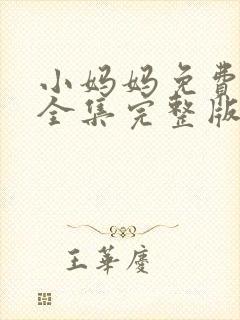 小妈妈免费
全集完整版
王華慶